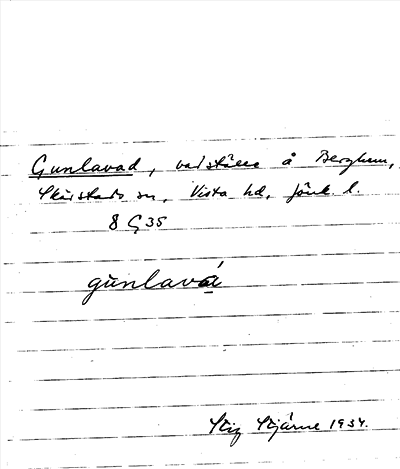 Gunlavad, vadställe å Berghem,
Skärstads sn, Vista hd, Jönk. l.
8 G 35
gùnlavá
Stig Stjärne 1934.